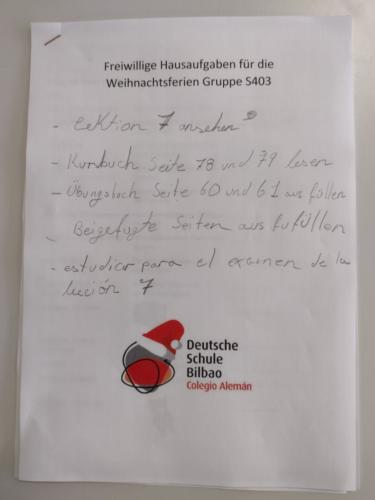 Freiwillige Hausaufgaben für die
Weihnachtsferien Gruppe S403
- Lektion 7 ansehen
- Kursbuch Seite 78 und 79 lesen
- Übungsbuch Seite 60 und 61 aus füllen
- Beigefügte Seiten aus fufüllen
- estudiar para el examen de la
lección 7
Deutsche
Schule
Bilbao
Colegio Alemán